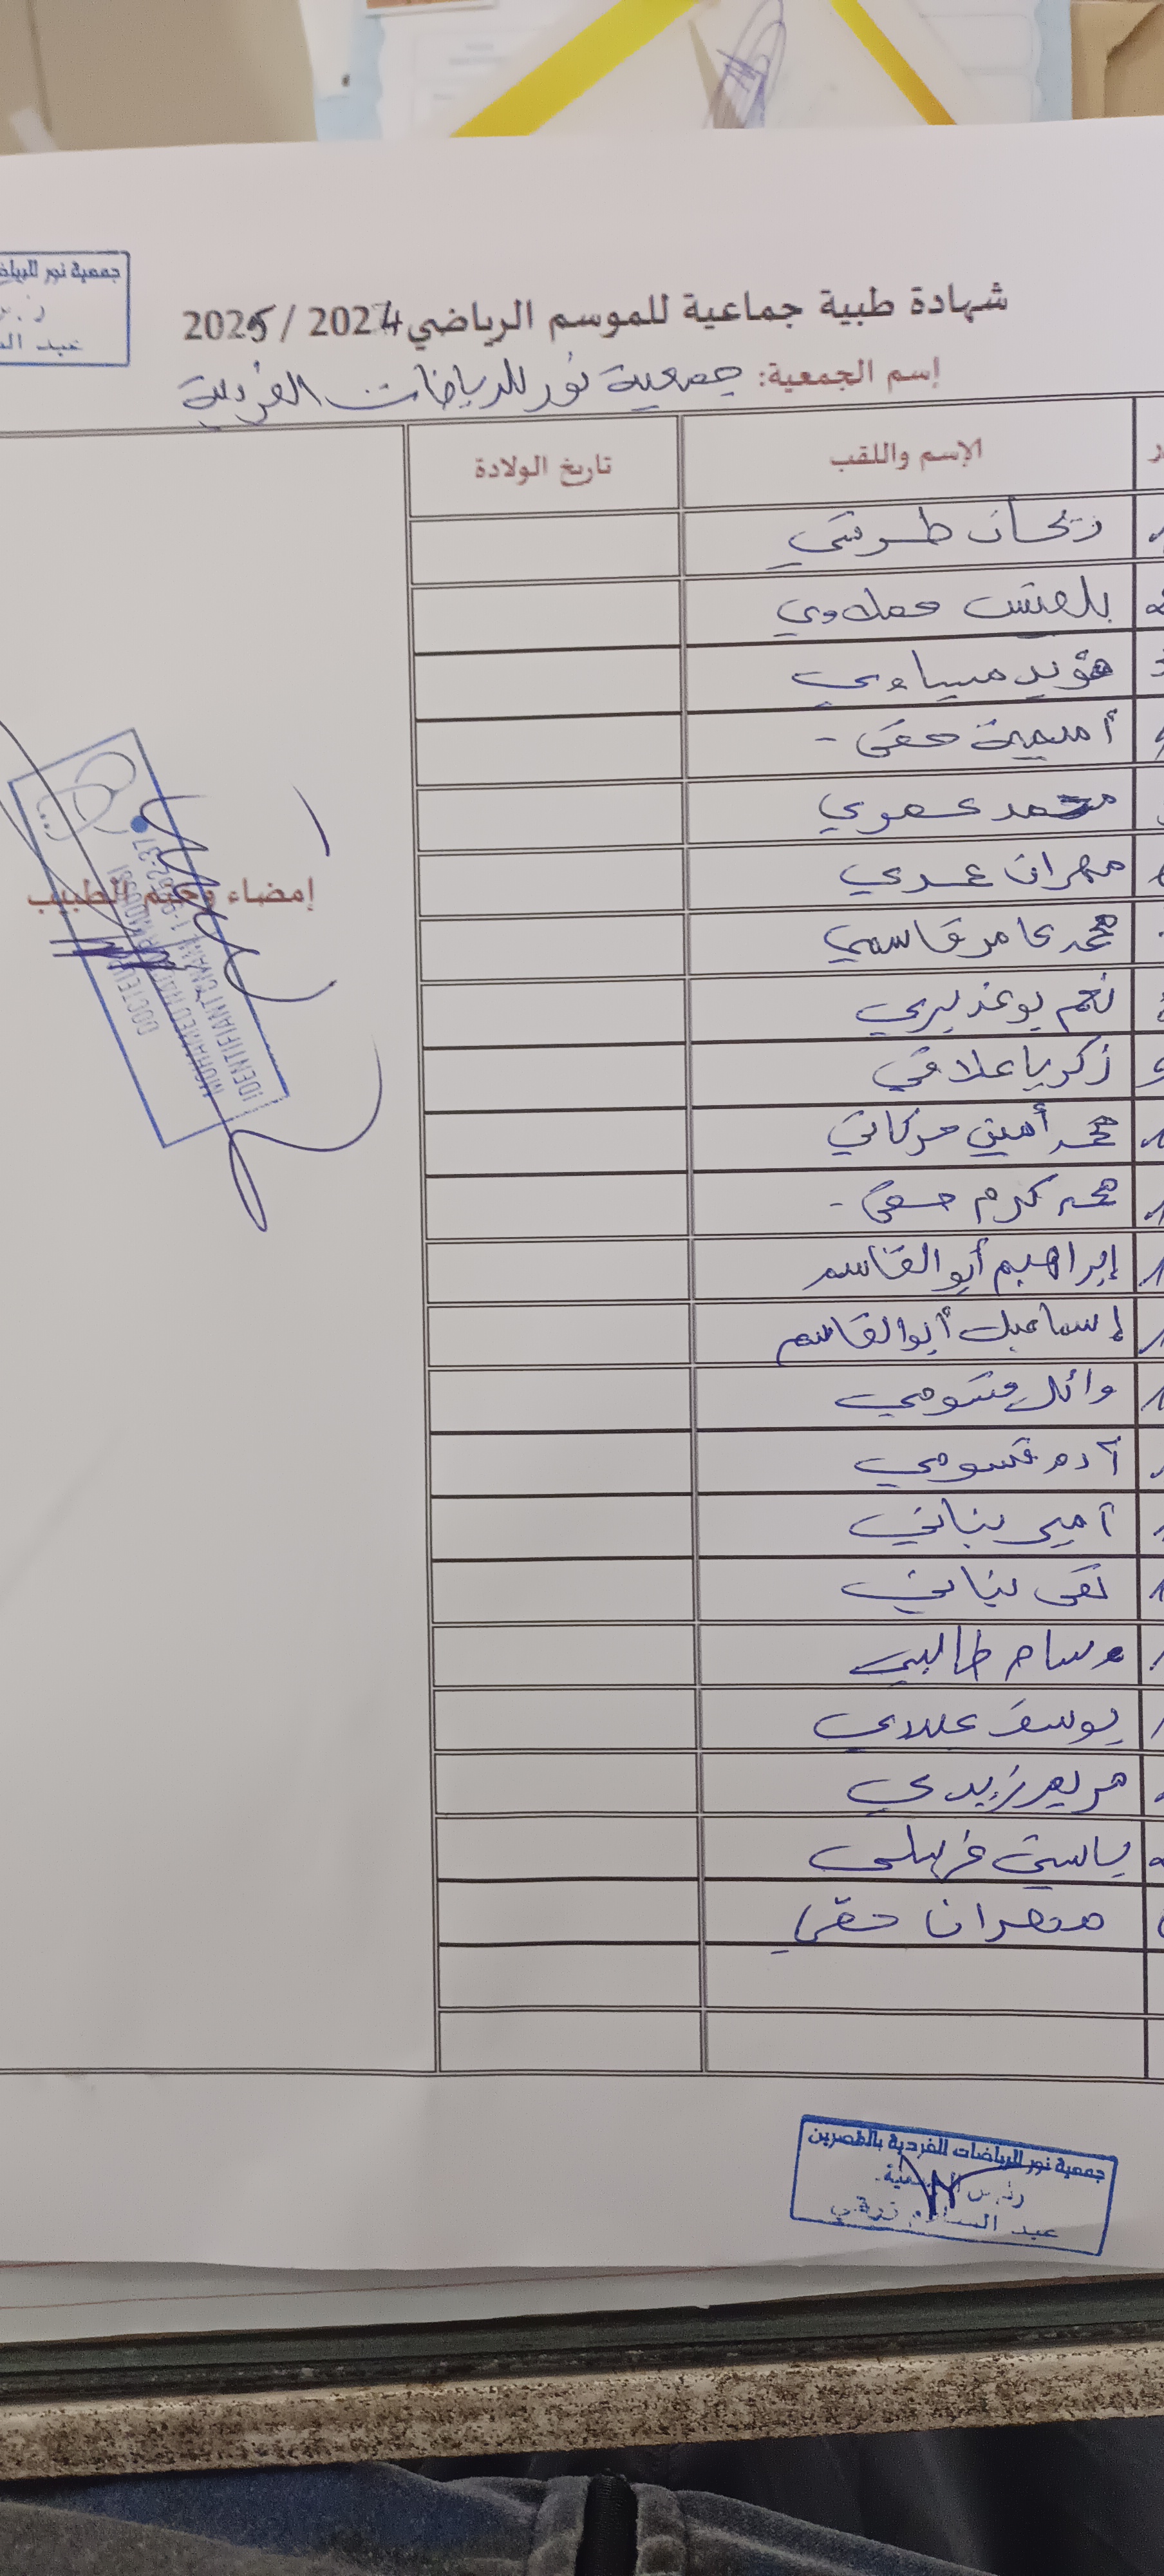 جمعية نور للرياض
عبد ال
شهادة طبية جماعية للموسم الرياضي 2024 / 2025
إسم الجمعية: جمعية نور للرياضات الفردية
الإسم واللقب
تاريخ الولادة
بلقيس حملاوي
مؤيد عيساوي
أميمة حقي -
محمد عموي
مهران عمري
محمد عامر قاسمي
نعم بوعذيري
زكريا علاقي
محمد أمين حركاتي
محمد كرم حقي -
إبراهيم أبو القاسم
إسماعيل أبو القاسم
وائل قسومي
آدم قسومي
أمير بناني
تقى بناني
وسام طالبي
يوسف عبيدي
مريم زيدي
ياسين غرسلي
مهران حقي
إمضاء وختم الطبيب
DOCTEUR
IDENTIFIANT CNAM
جمعية نور للرياضات الفردية بالقصرين
رئيس الجمعية
عبد السلام زرقي